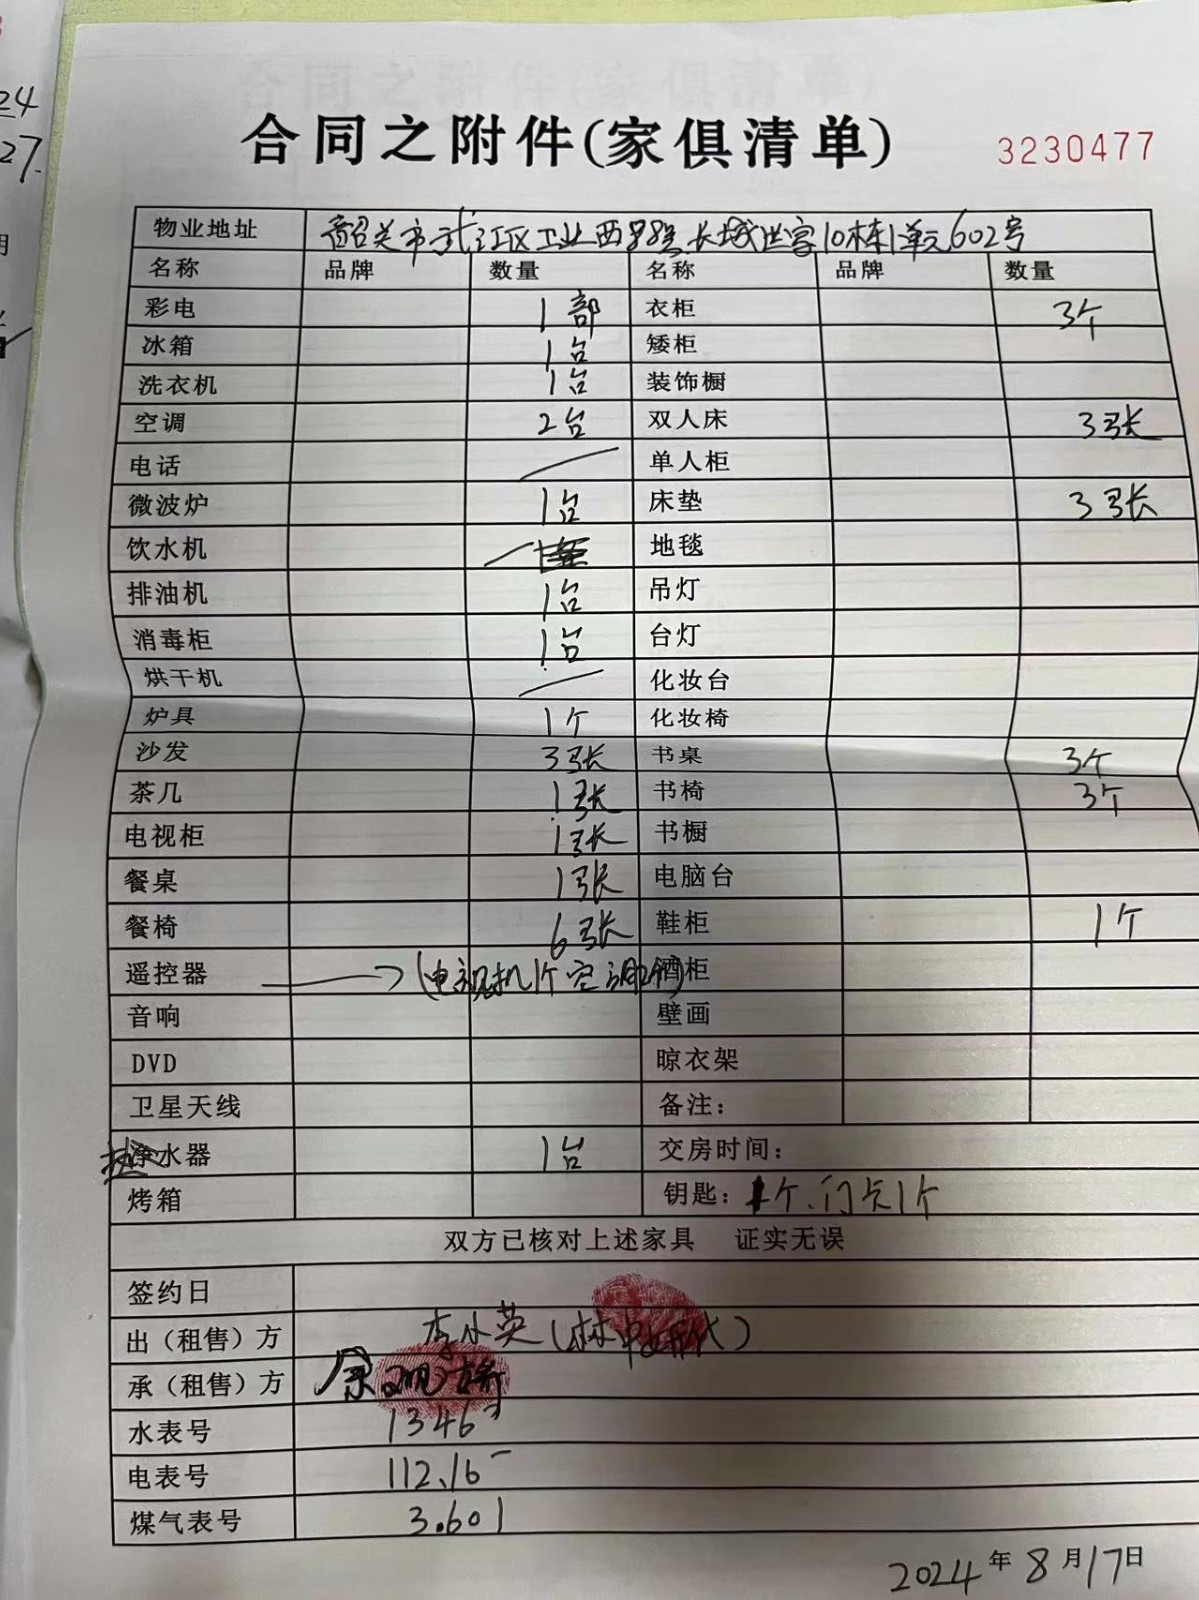 合同之附件(家俱清单)
3230477
物业地址 韶关市武江区工业西88号长城世家10栋1单元602号
名称 品牌 数量 名称 品牌 数量
彩电 1部 衣柜 3个
冰箱 1台 矮柜
洗衣机 1台 装饰橱
空调 2台 双人床 3张
电话 单人柜
微波炉 1台 床垫 3张
饮水机 地毯
排油机 1台 吊灯
消毒柜 1台 台灯
烘干机 化妆台
炉具 1个 化妆椅
沙发 3张 书桌 3个
茶几 1张 书椅 3个
电视柜 1张 书橱
餐桌 1张 电脑台
餐椅 6张 鞋柜 1个
遥控器 → (电视机1个空调2个) 酒柜
音响 壁画
DVD 晾衣架
卫星天线 备注：
水器 1台 交房时间：
烤箱 钥匙：1个、门卡1个
双方已核对上述家具 证实无误
签约日
出（租售）方 李小英(林中娇代)
承（租售）方
水表号 1346
电表号 112.16
煤气表号 3.601
2024年8月17日
24
27.